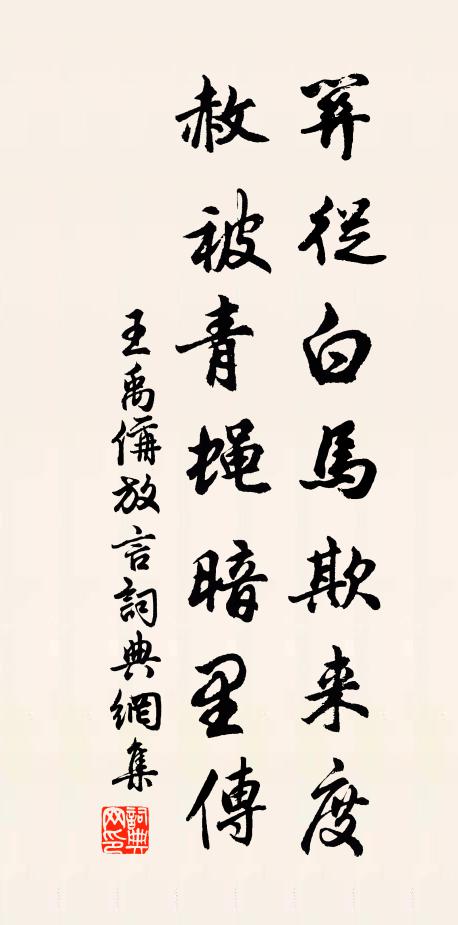 关從白馬欺来度
赦被青蠅暗里傳
王禹偁放言詞典網集
詞典網印